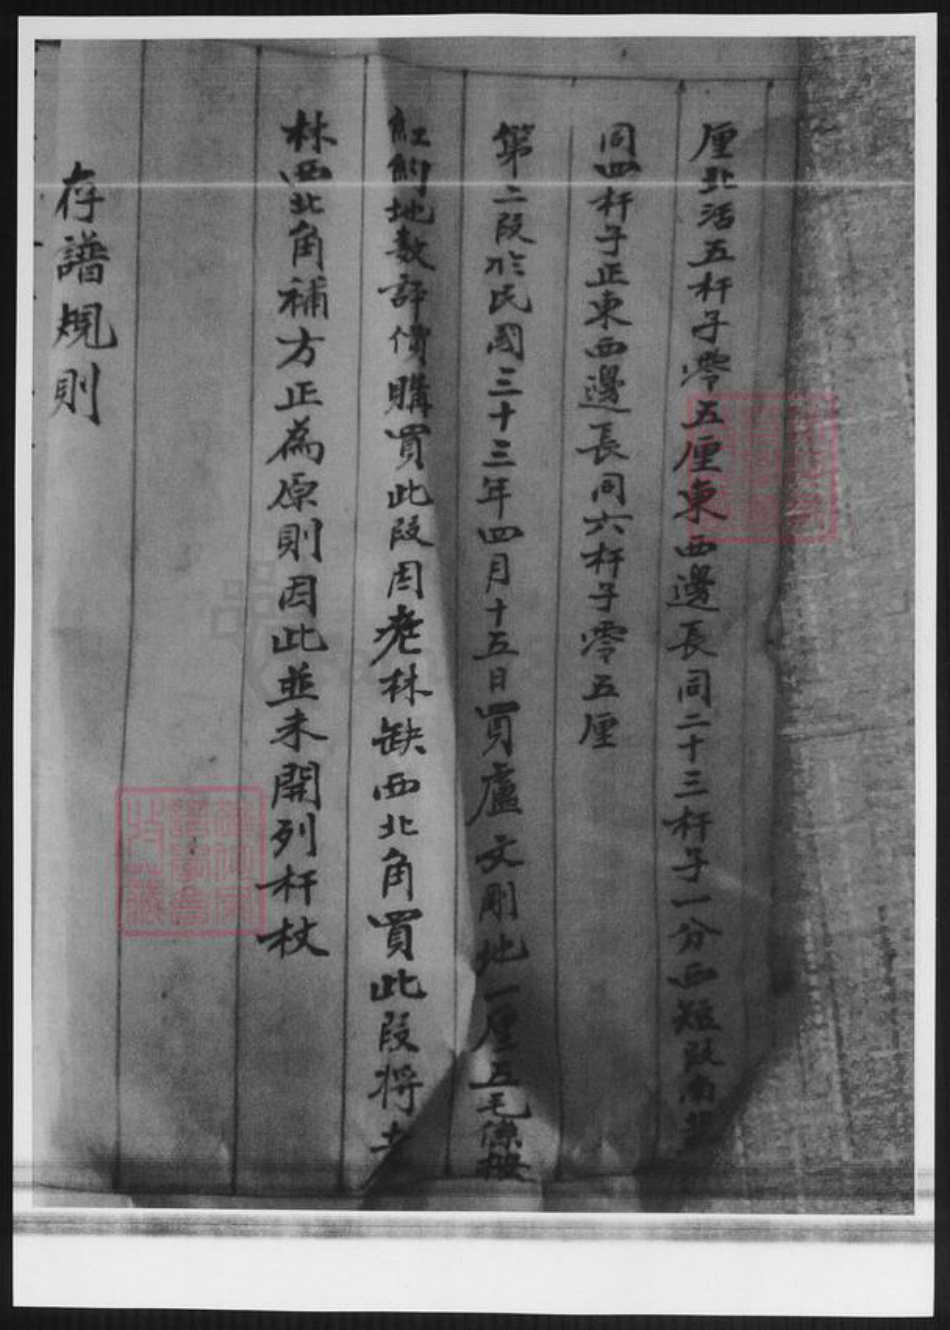 厘北活五杆子零五厘東西邊長同二十三杆子一分西短段南北
同四杆子正東西邊長同六杆子零五厘
第二段於民國三十三年四月十五日買盧文剛地一厘五毛係按
紅約地數評價購買此段因老林缺西北角買此段將老
林西北角補方正為原則因此並未開列杆杖
存譜規則